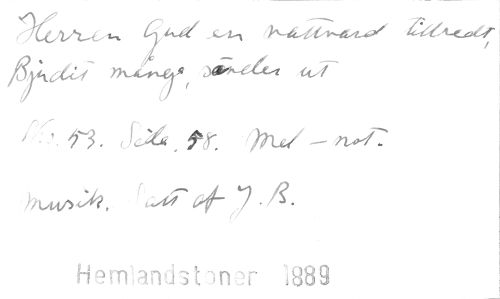 Herren Gud en nattvard tillredt,
Bjudit många, sänder ut
No. 53. Sida 58. Mel-not.
musik. Satt af J. B.
Hemlandstoner 1889